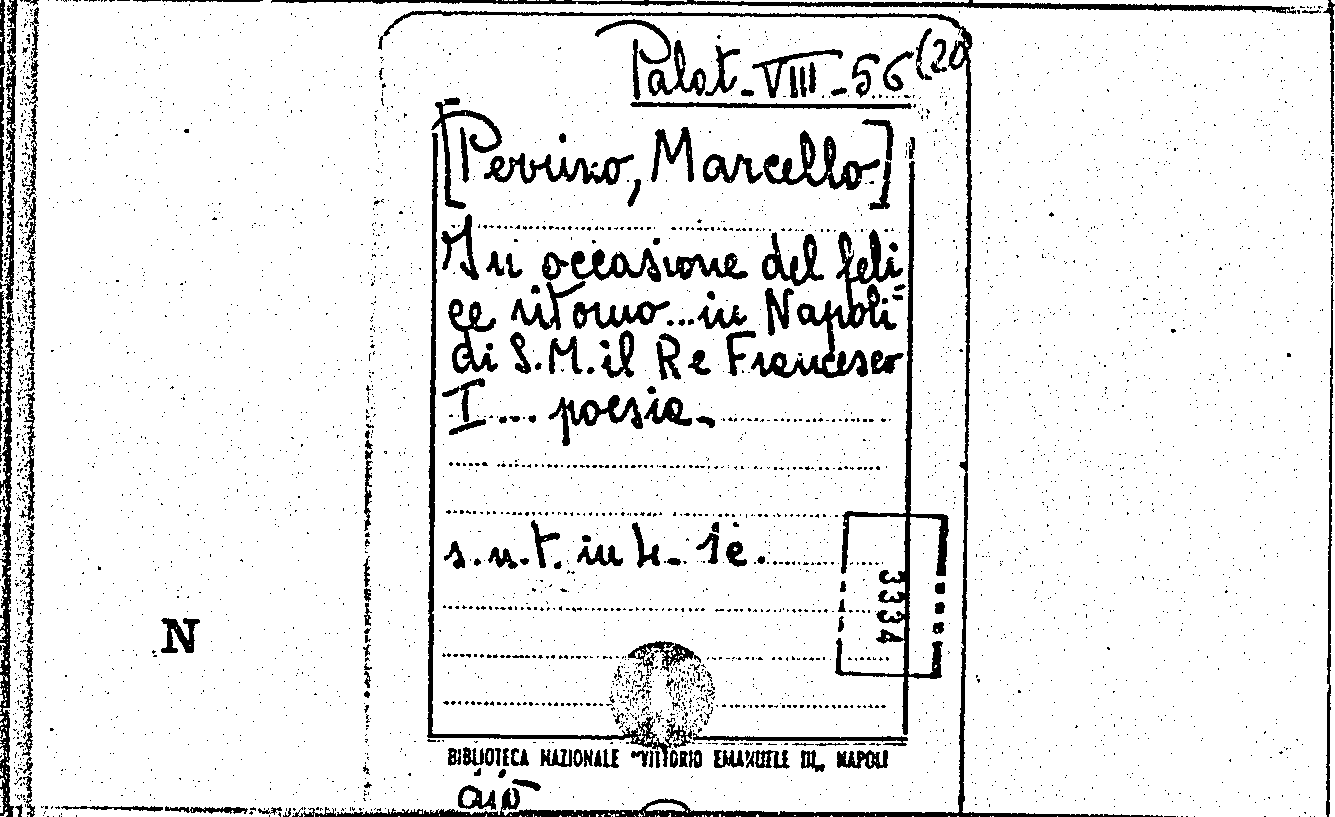 Palat. VIII - 56 (20
[Perrino, Marcello]
In occasione del feli
ce ritorno... in Napoli
di S.M. il Re Francesco
I... poesia.
s.n.t. in 4. 1c.
3334
N
BIBLIOTECA NAZIONALE "VITTORIO EMANUELE III" NAPOLI